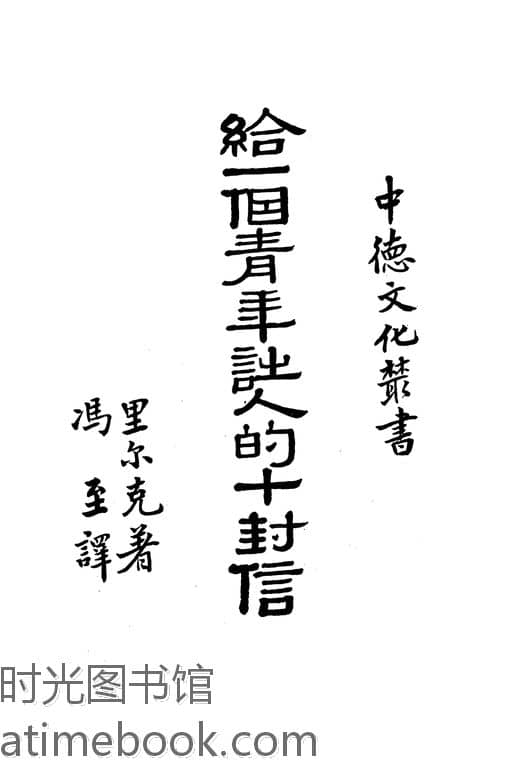 中德文化叢書
給一個青年詩人的十封信
里尔克著
馮至譯
时光图书馆
atimebook.com